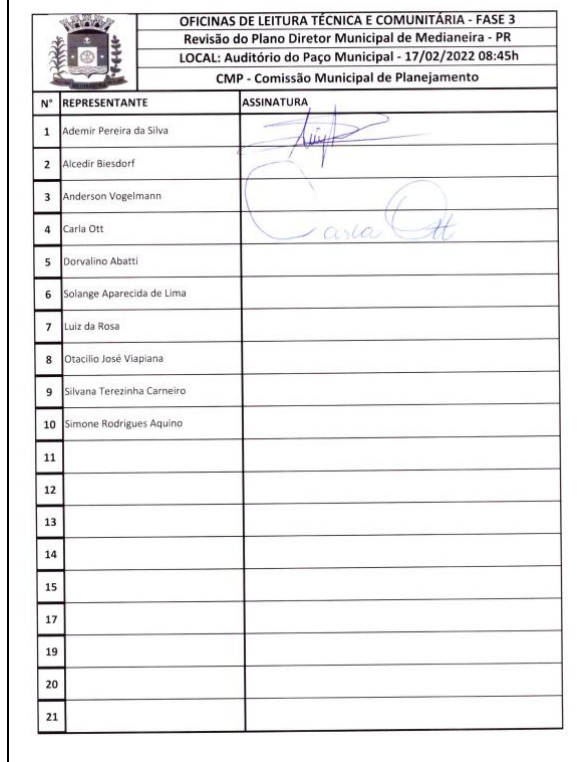 OFICINAS DE LEITURA TÉCNICA E COMUNITÁRIA - FASE 3
Revisão do Plano Diretor Municipal de Medianeira - PR
LOCAL: Auditório do Paço Municipal - 17/02/2022 08:45h
CMP - Comissão Municipal de Planejamento
N° REPRESENTANTE ASSINATURA
1 Ademir Pereira da Silva
2 Alcedir Biesdorf
3 Anderson Vogelmann
4 Carla Ott Carla Ott
5 Dorvalino Abatti
6 Solange Aparecida de Lima
7 Luiz da Rosa
8 Otacilio José Viapiana
9 Silvana Terezinha Carneiro
10 Simone Rodrigues Aquino
11
12
13
14
15
17
19
20
21